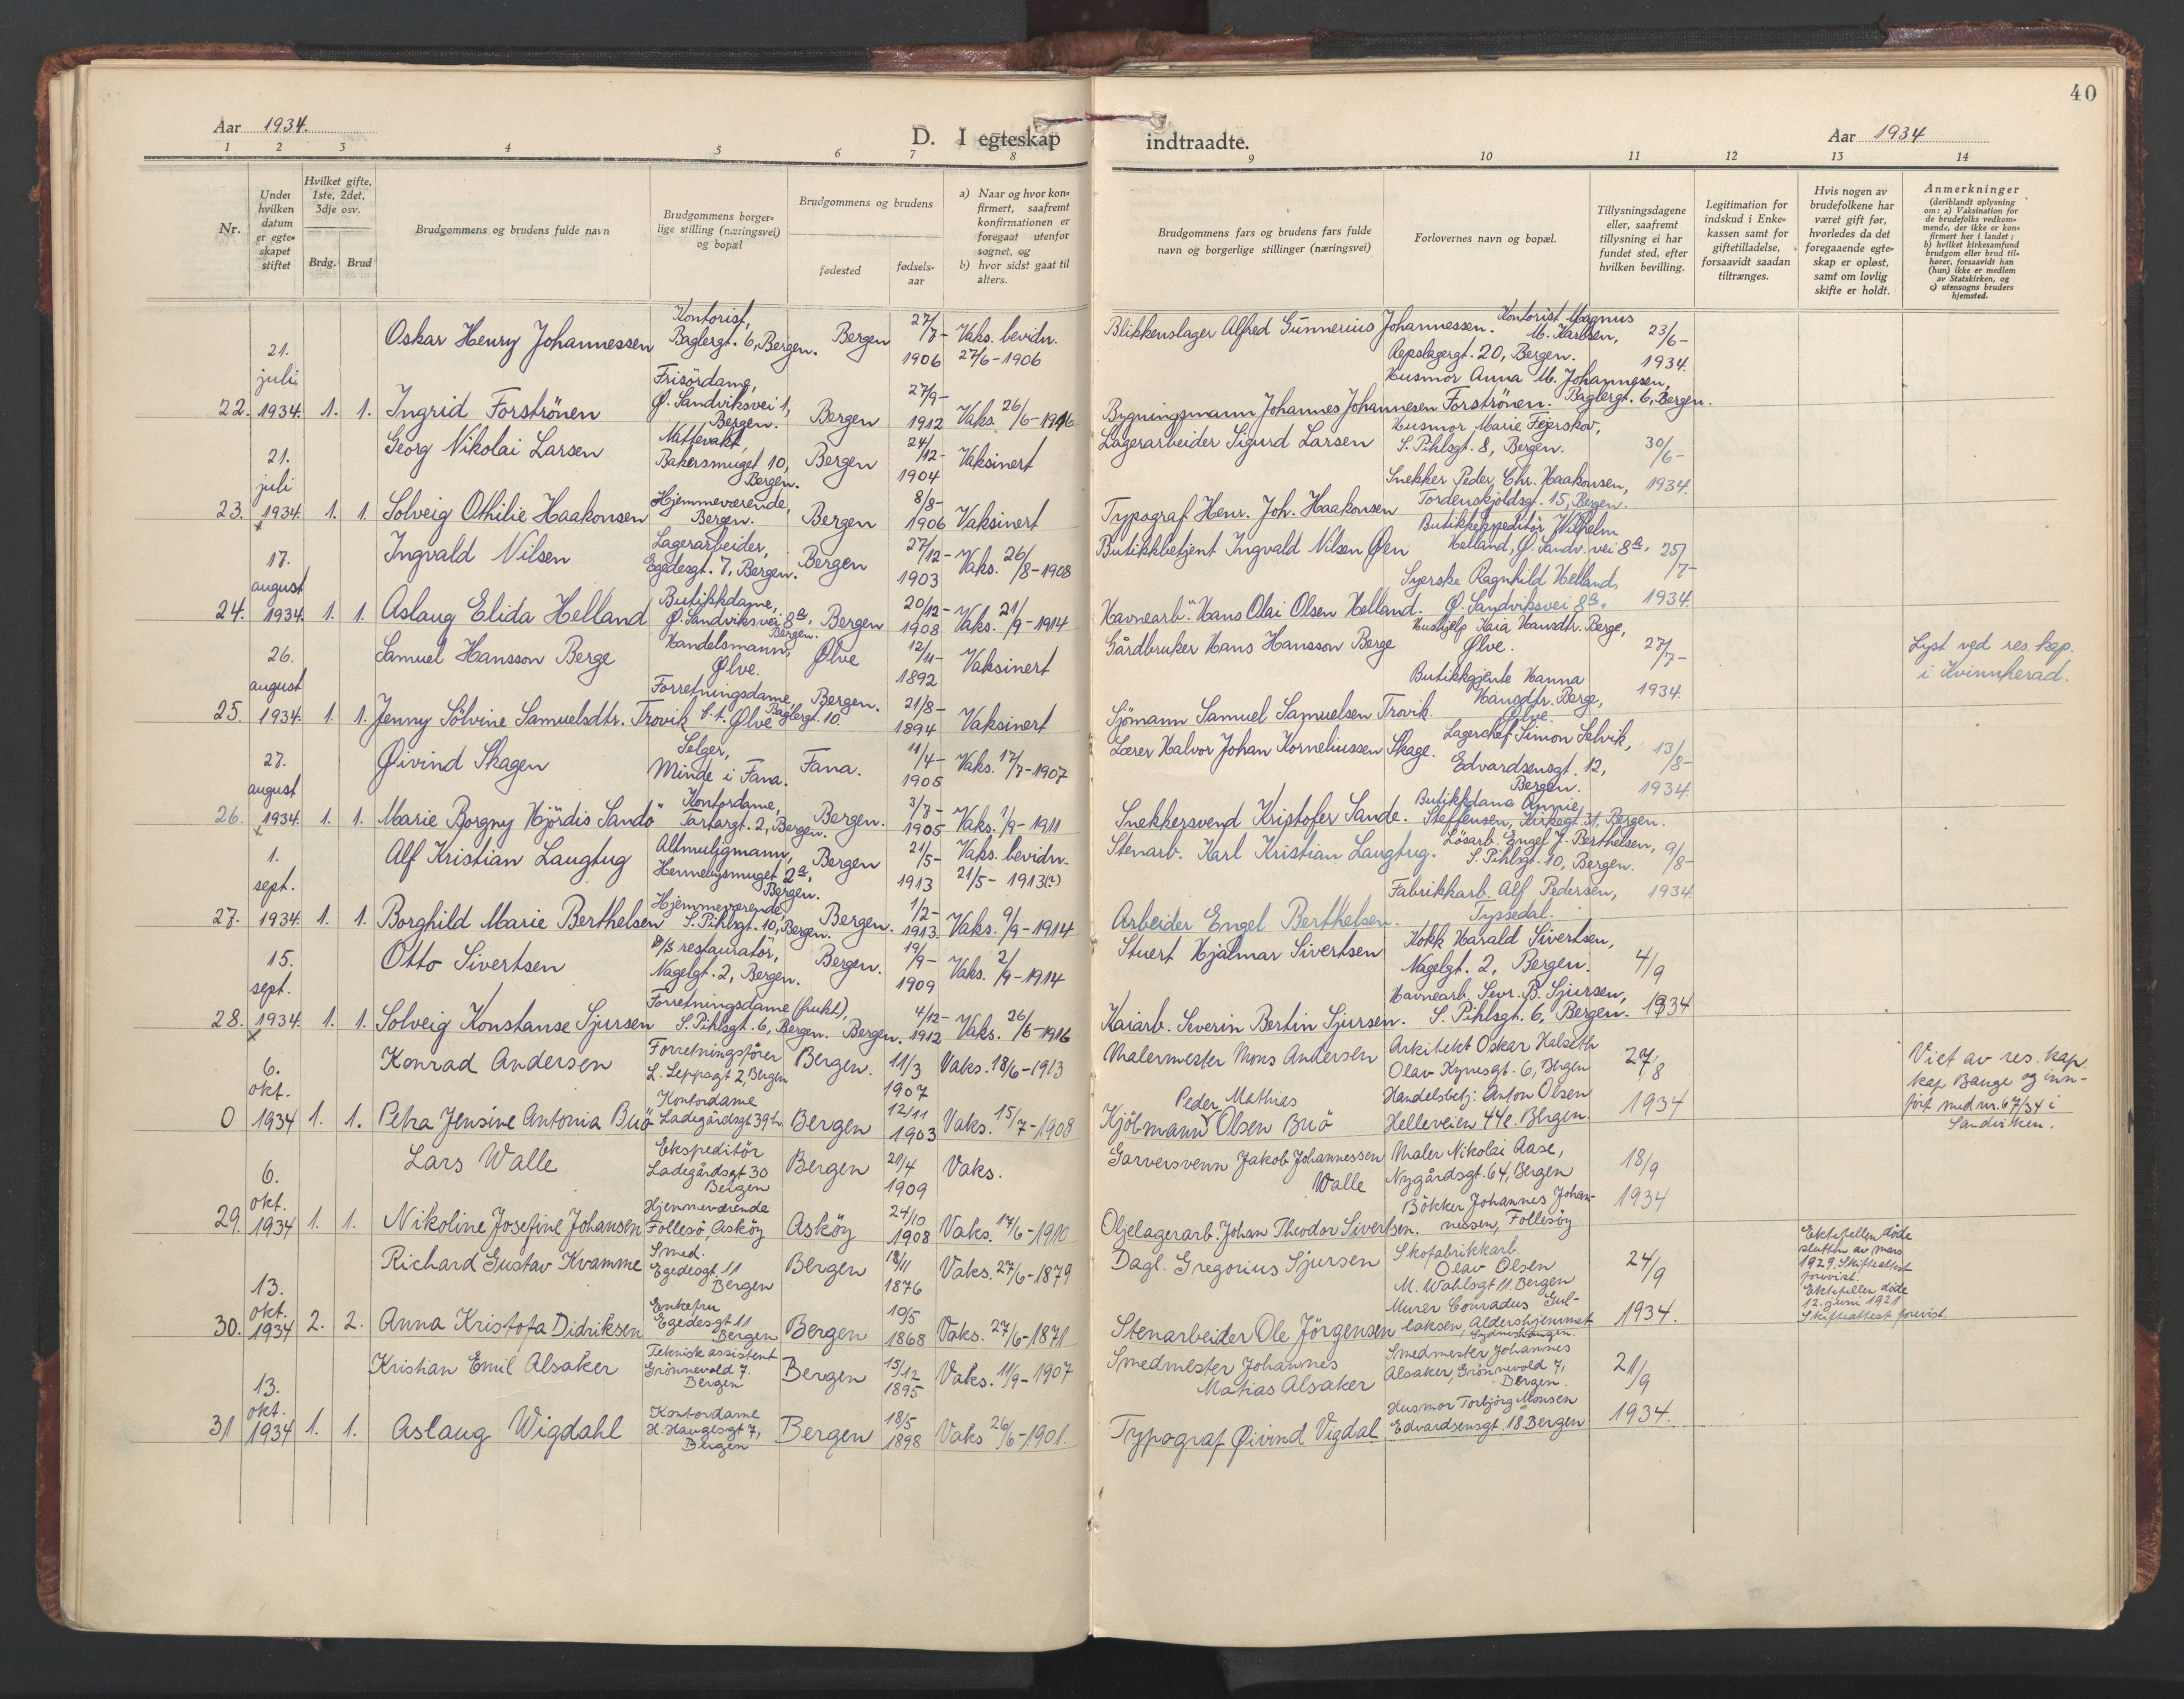 40
Aar 1934.
D. I egteskap indtraadte.
Aar 1934
1 2 3 4 5 6 7 8 9 10 11 12 13 14
Nr.
Under hvilken datum er egte-skapet stiftet
Hvilket gifte, 1ste, 2det, 3dje osv.
Brdg. Brud
Brudgommens og brudens fulde navn
Brudgommens borger-lige stilling (næringsvei) og bopæl
Brudgommens og brudens
fødested
fødsels-aar
a) Naar og hvor kon-firmert, saafremt konfirmationen er foregaat utenfor sognet, og
b) hvor sidst gaat til alters.
Brudgommens fars og brudens fars fulde navn og borgerlige stillinger (næringsvei)
Forlovernes navn og bopæl.
Tillysningsdagene eller, saafremt tillysning ei har fundet sted, efter hvilken bevilling.
Legitimation for indskud i Enke-kassen samt for giftetilladelse, forsaavidt saadan tiltrænges.
Hvis nogen av brudefolkene har været gift før, hvorledes da det foregaaende egte-skap er opløst, samt om lovlig skifte er holdt.
Anmerkninger
(deriblandt oplysning om: a) Vaksination for de brudefolks vedkom-mende, der ikke er kon-firmert her i landet; b) hvilket kirkesamfund brudgom eller brud til-hører, forsaavidt han (hun) ikke er medlem av Statskirken, og c) utensogns bruders hjemsted.
22. 21. juli 1934. 1. 1.
Oskar Henry Johannessen
Kontorist, Baglergt. 6, Bergen.
Bergen 27/7-1906
Vaks. bevidn. 27/6-1906
Blikkenslager Alfred Gunnerius Johannessen.
Kontorist Magnus M. Karlsen, Repslagergt. 20, Bergen.
23/6-1934.
Ingrid Forströnen
Frisördame, Ø. Sandviksvei 1, Bergen.
Bergen 27/9-1912
Vaks. 26/6-1916
Bygningsmann Johannes Johannesen Forströnen.
Husmor Anna M. Johannesen, Baglergt. 6, Bergen.
23. 21. juli 1934. 1. 1.
Georg Nikolai Larsen
Nattevakt, Bakersmuget 10, Bergen.
Bergen 24/12-1904
Vaksinert
Lagerarbeider Sigurd Larsen
Husmor Marie Fejerskov, S. Pihlsgt. 8, Bergen.
30/6-1934.
Solveig Othilie Haakonsen
Hjemmeværende, Bergen.
Bergen 8/8-1906
Vaksinert
Typograf Henr. Joh. Haakonsen
Snekker Peder Chr. Haakonsen, Tordenskjoldsgt. 15, Bergen.
24. 17. august 1934. 1. 1.
Ingvald Nilsen
Lagerarbeider, Egedesgt. 7, Bergen.
Bergen 27/12-1903
Vaks. 26/8-1908
Butikkbetjent Ingvald Nilsen Øen
Butikkekspeditör Wilhelm Helland, Ø. Sandv. vei 8a.
25/7-1934.
Aslaug Elida Helland
Butikkdame, Ø. Sandviksvei 8a. Bergen.
Bergen 20/12-1908
Vaks. 21/9-1914
Havnearb. Hans Olai Olsen Helland.
Syerske Ragnhild Helland, Ø. Sandviksvei 8a.
25. 26. august 1934. 1. 1.
Samuel Hansson Berge
Handelsmann, Ølve.
Ølve 12/11-1892
Vaksinert
Gårdbruker Hans Hansson Berge
Hushjelp Kaia Hansdtr. Berge, Ølve.
27/7-1934.
Lyst ved res. kap. i Kvinnherad.
Jenny Sölvine Samuelsdtr. Trovik
Forretningsdame, Baglergt. 10 f. t. Ølve
Bergen. 21/8-1894
Vaksinert
Sjömann Samuel Samuelsen Trovik.
Butikkgjente Hanna Hansdtr. Berge, Ølve.
26. 27. august 1934. 1. 1.
Øivind Skagen
Selger, Minde i Fana.
Fana. 11/4-1905
Vaks. 17/7-1907
Lærer Halvor Johan Korneliussen Skage.
Lagerchef Simon Selvik, Edvardsensgt. 12, Bergen.
13/8-1934.
Marie Borgny Hjördis Sandö
Kontordame, Tartargt. 2, Bergen.
Bergen. 3/7-1905
Vaks. 1/9-1911
Snekkersvend Kristofer Sande.
Butikkdame Annie Steffensen, Kirkegt. 31, Bergen.
27. 1. sept. 1934. 1. 1.
Alf Kristian Laugtug
Altmuligmann, Hennebysmuget 2a, Bergen.
Bergen 21/5-1913
Vaks. bevidn. 21/5-1913(?)
Stenarb. Karl Kristian Laugtug.
Lösarb. Engel J. Berthelsen, S. Pihlsgt. 10, Bergen.
9/8-1934
Borghild Marie Berthelsen
Hjemmeværende, S. Pihlsgt. 10, Bergen.
Bergen. 1/2-1913.
Vaks. 9/9-1914
Arbeider Engel Berthelsen.
Fabrikkarb. Alf Pedersen, Tyssedal.
28. 15. sept. 1934. 1. 1.
Otto Sivertsen
D/S restauratör, Nagelgt. 2, Bergen.
Bergen. 19/9-1909
Vaks. 2/9-1914
Stuert Hjalmar Sivertsen
Kokk Harald Sivertsen, Nagelgt. 2, Bergen.
4/9 1934
Solveig Konstanse Sjursen
Forretningsdame (frukt), S. Pihlsgt. 6, Bergen.
Bergen. 4/12-1912
Vaks. 26/6-1916
Kaiarb. Severin Bertin Sjursen.
Havnearb. Sevr. B. Sjursen, S. Pihlsgt. 6, Bergen.
0 6. okt. 1934 1. 1.
Konrad Andersen
Forretningsförer L. Leppsgt 2, Bergen
Bergen. 11/3 1907
Vaks. 18/6-1913
Malermester Mons Andersen
Arkitekt Oskar Halseth Olav Kyrresgt. 6, Bergen
27/8 1934
Viet av res. kap. kap Bauge og inn-fört med nr. 67/34 i Sandviken.
Petra Jensine Antonia Buö
Kontordame Ladegårdsgt 39b
Bergen 12/11 1903
Vaks. 15/7-1908
Kjöbmann Peder Mathias Olsen Buö
Handelsbetj: Anton Olsen Helleveien 44e. Bergen.
29. 6. okt. 1934 1. 1.
Lars Walle
Ekspeditör Ladegårdsgt 30 Bergen
Bergen 21/4 1909
Vaks.
Garversvenn Jakob Johannessen Walle
Maler Nikolai Aase, Nygårdsgt. 64, Bergen
18/9 1934
Nikoline Josefine Johansen
Hjemmeværende Follesö, Asköy
Asköy 24/10 1908
Vaks. 17/6-1910
Oljelagerarb. Johan Theodor Sivertsen.
Bökker Johannes Johan-nessen, Follesöy
30. 13. okt. 1934 2. 2.
Richard Gustav Kvamme
Smed. Egedesgt. 11 Bergen
Bergen 18/11 1876
Vaks. 27/6-1879
Dagl. Gregorius Sjursen
Skofabrikkarb. Olav Olsen M. Wahlsgt 11 Bergen
24/9 1934.
Ektefellen döde slutten av mars 1929. Skifteattest forevist.
Ektefellen döde 12. juni 1921 Skifteattest forevist.
Anna Kristofa Didriksen
Enkefru Egedesgt 11 Bergen
Bergen 10/5 1868
Vaks. 27/6-1871
Stenarbeider Ole Jörgensen
Murer Conradus Gul-laksen, Aldershjemmet Sydneshaugen.
31 13. okt. 1934 1. 1.
Kristian Emil Alsaker
Teknisk assistent Grönnevold 7. Bergen
Bergen 15/12 1895
Vaks. 11/9-1907
Smedmester Johannes Matias Alsaker
Smedmester Johannes Alsaker, Grönnevold 7, Bergen.
21/9 1934.
Aslaug Wigdahl
Kontordame H. Haugesgt 7, Bergen
Bergen 18/5 1898
Vaks 26/6-1901.
Typograf Øivind Vigdal
Husmor Torbjörg Monsen Edvardsensgt. 18. Bergen